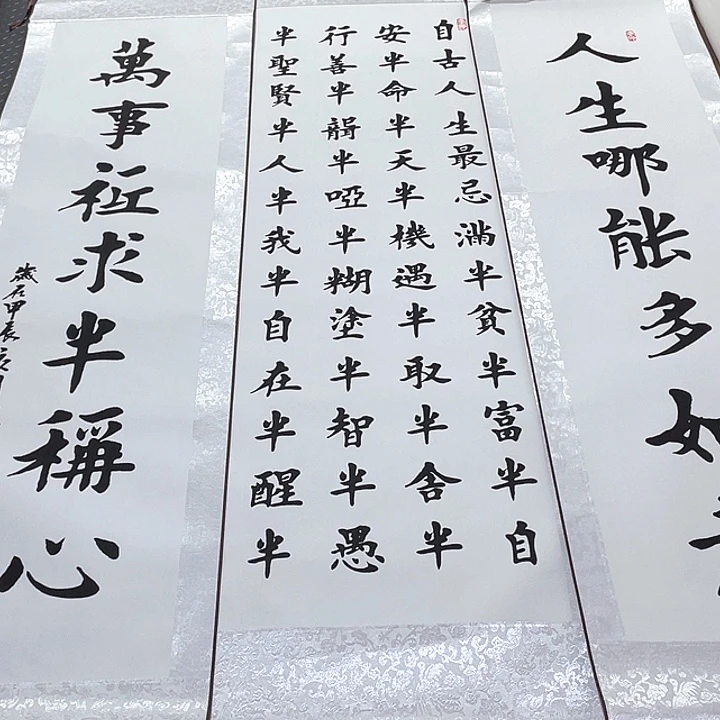 人生哪能多如
自古人生最忌滿半貧半富半自
安半命半天半機遇半取半舍半
行善半聾半啞半糊塗半智半愚
半聖賢半人半我半自在半醒半
萬事祗求半稱心
歲在甲辰